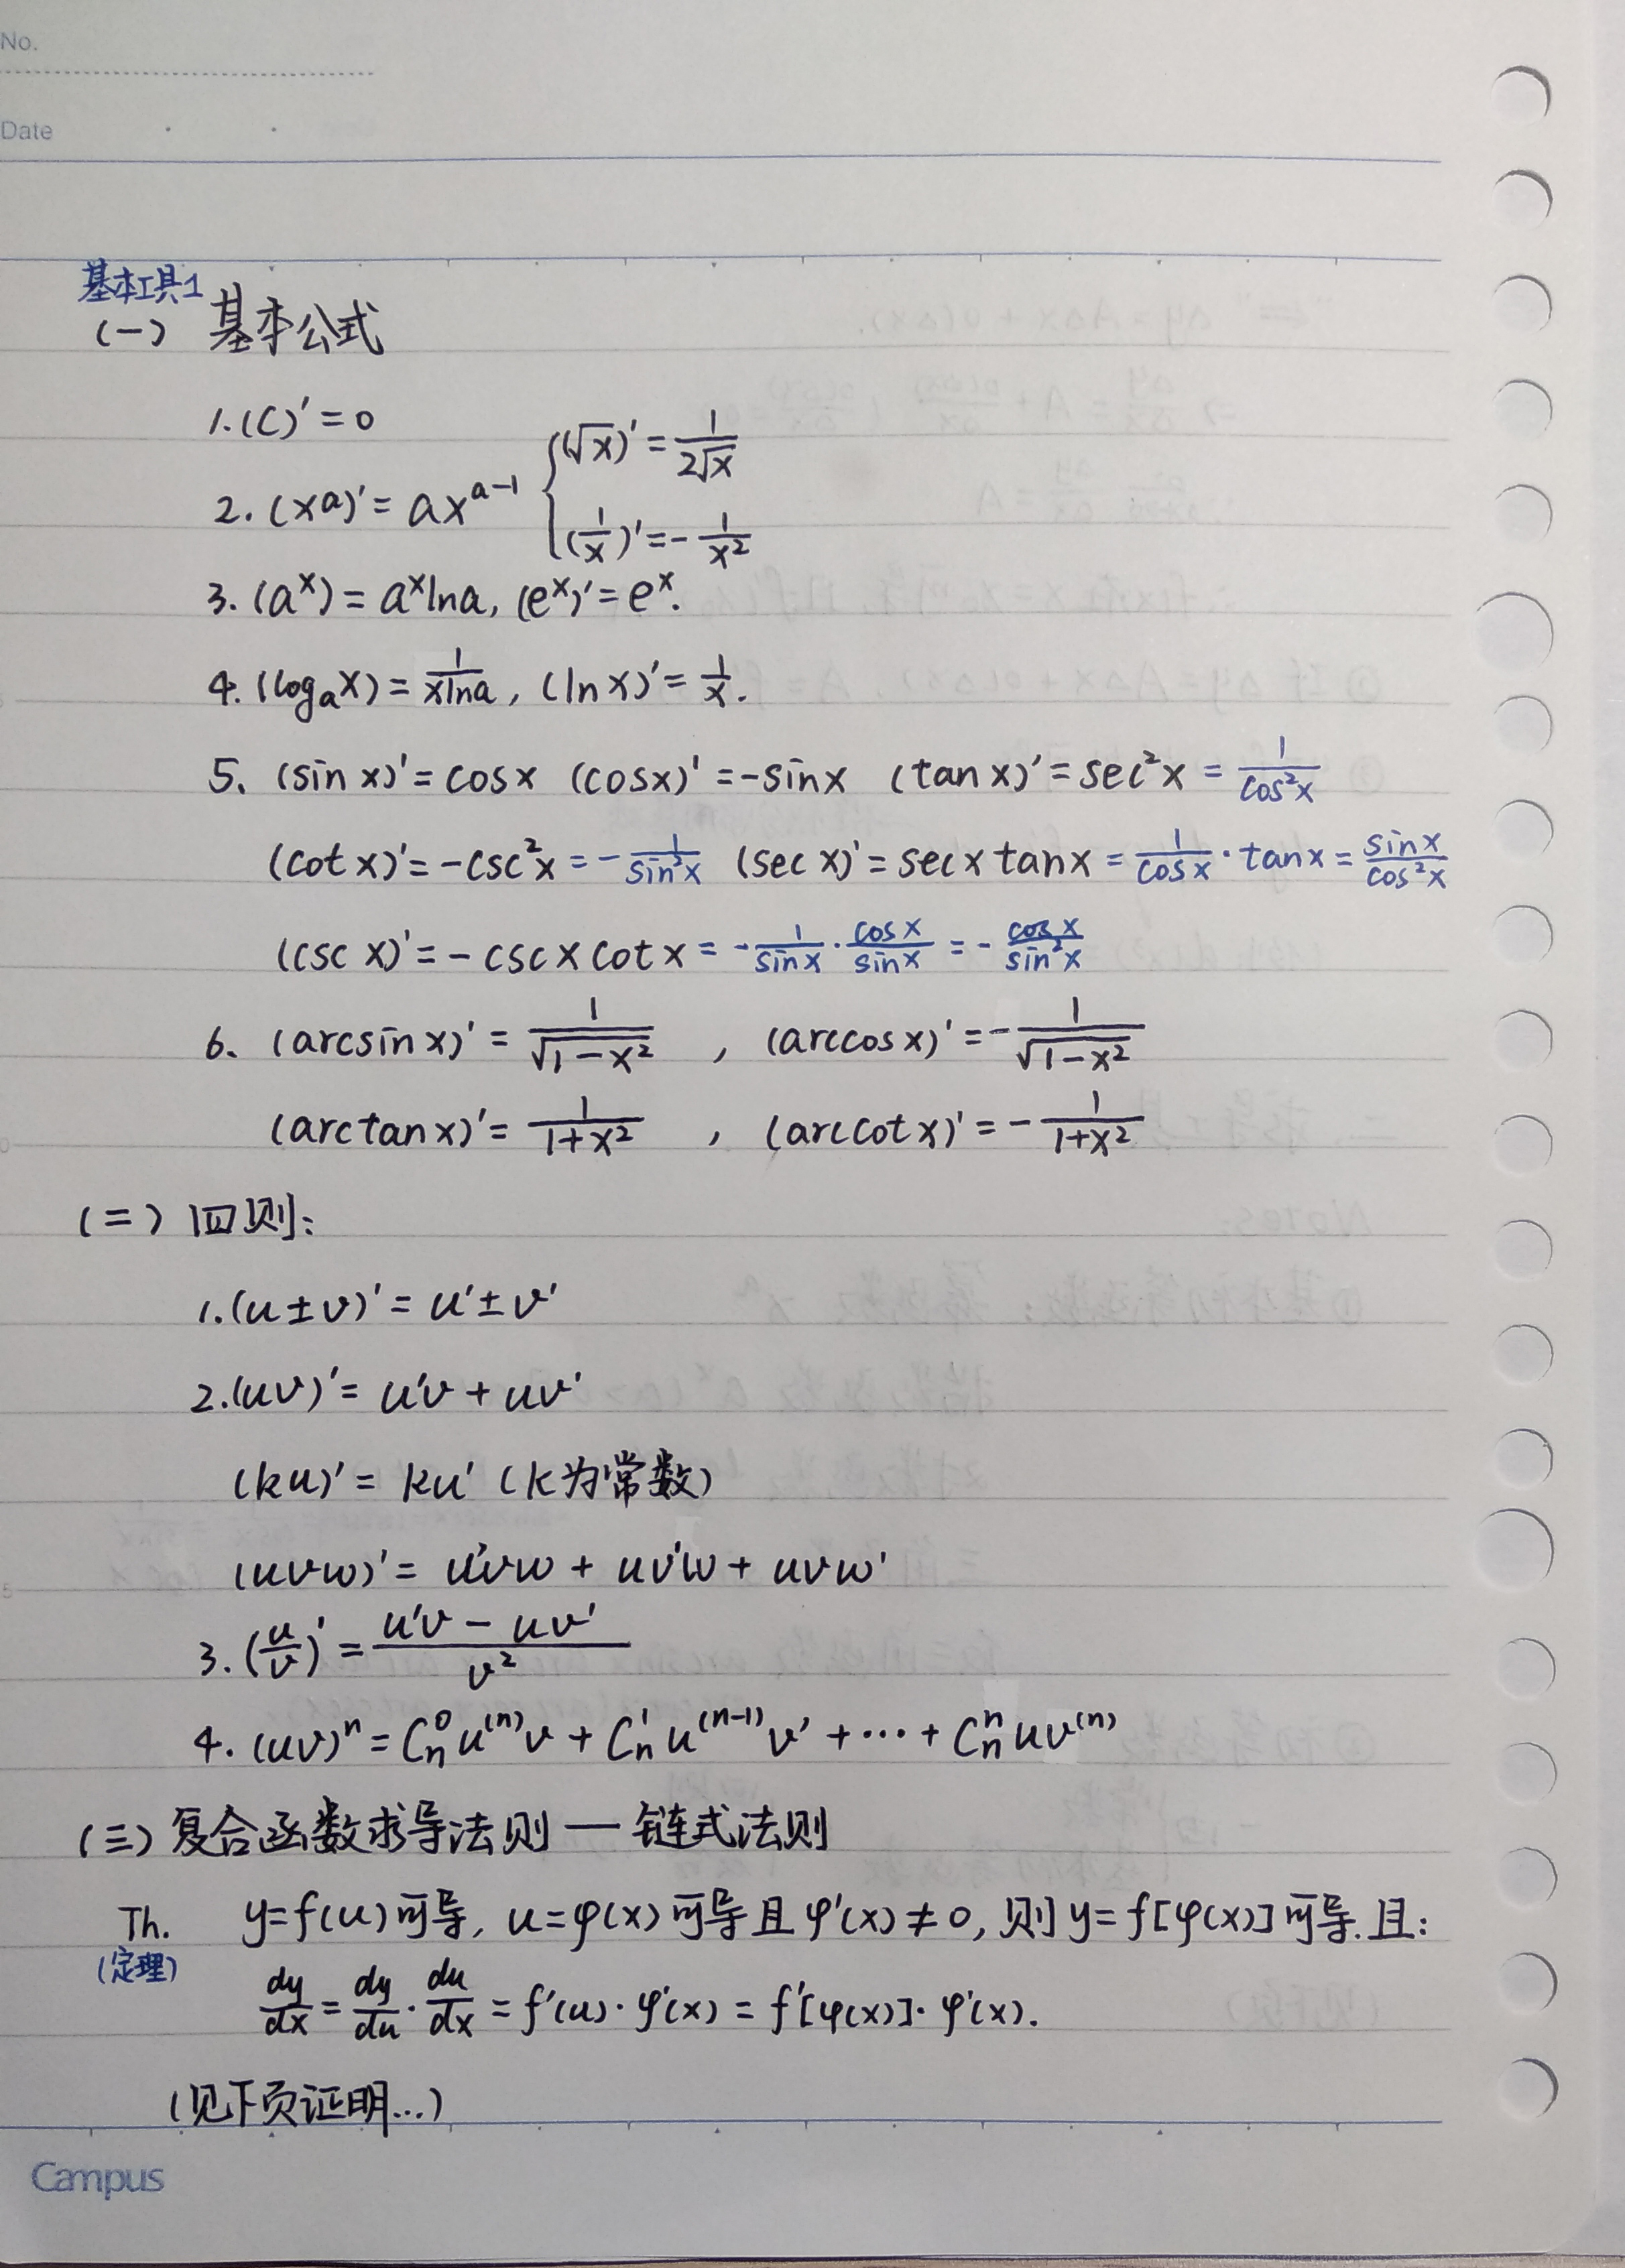 No.
Date
基本工具1
(一) 基本公式
1. (C)' = 0
2. (xᵃ)' = axᵃ⁻¹ { (√x)' = 1/(2√x)
(1/x)' = -1/x²
3. (aˣ) = aˣlna, (eˣ)' = eˣ.
4. (logₐx) = 1/(xlna), (lnx)' = 1/x.
5. (sin x)' = cosx (cosx)' = -sinx (tanx)' = sec²x = 1/cos²x
(cot x)' = -csc²x = -1/sin²x (sec x)' = secx tanx = 1/cosx · tanx = sinx/cos²x
(csc x)' = -cscx cotx = -1/sinx · cosx/sinx = -cosx/sin²x
6. (arcsinx)' = 1/√(1-x²) , (arccosx)' = -1/√(1-x²)
(arctanx)' = 1/(1+x²) , (arccotx)' = -1/(1+x²)
(二) 四则:
1. (u±v)' = u'±v'
2. (uv)' = u'v + uv'
(ku)' = ku' (k为常数)
(uvw)' = u'vw + uv'w + uvw'
3. (u/v)' = (u'v - uv')/v²
4. (uv)ⁿ = Cₙ⁰u⁽ⁿ⁾v + Cₙ¹u⁽ⁿ⁻¹⁾v' + ⋯ + Cₙⁿuv⁽ⁿ⁾
(三) 复合函数求导法则 — 链式法则
Th. y=f(u)可导, u=φ(x)可导且φ'(x)≠0, 则y=f[φ(x)]可导.且:
(定理)
dy/dx = dy/du · du/dx = f'(u)·φ'(x) = f'[φ(x)]·φ'(x).
(见下页证明...)
Campus